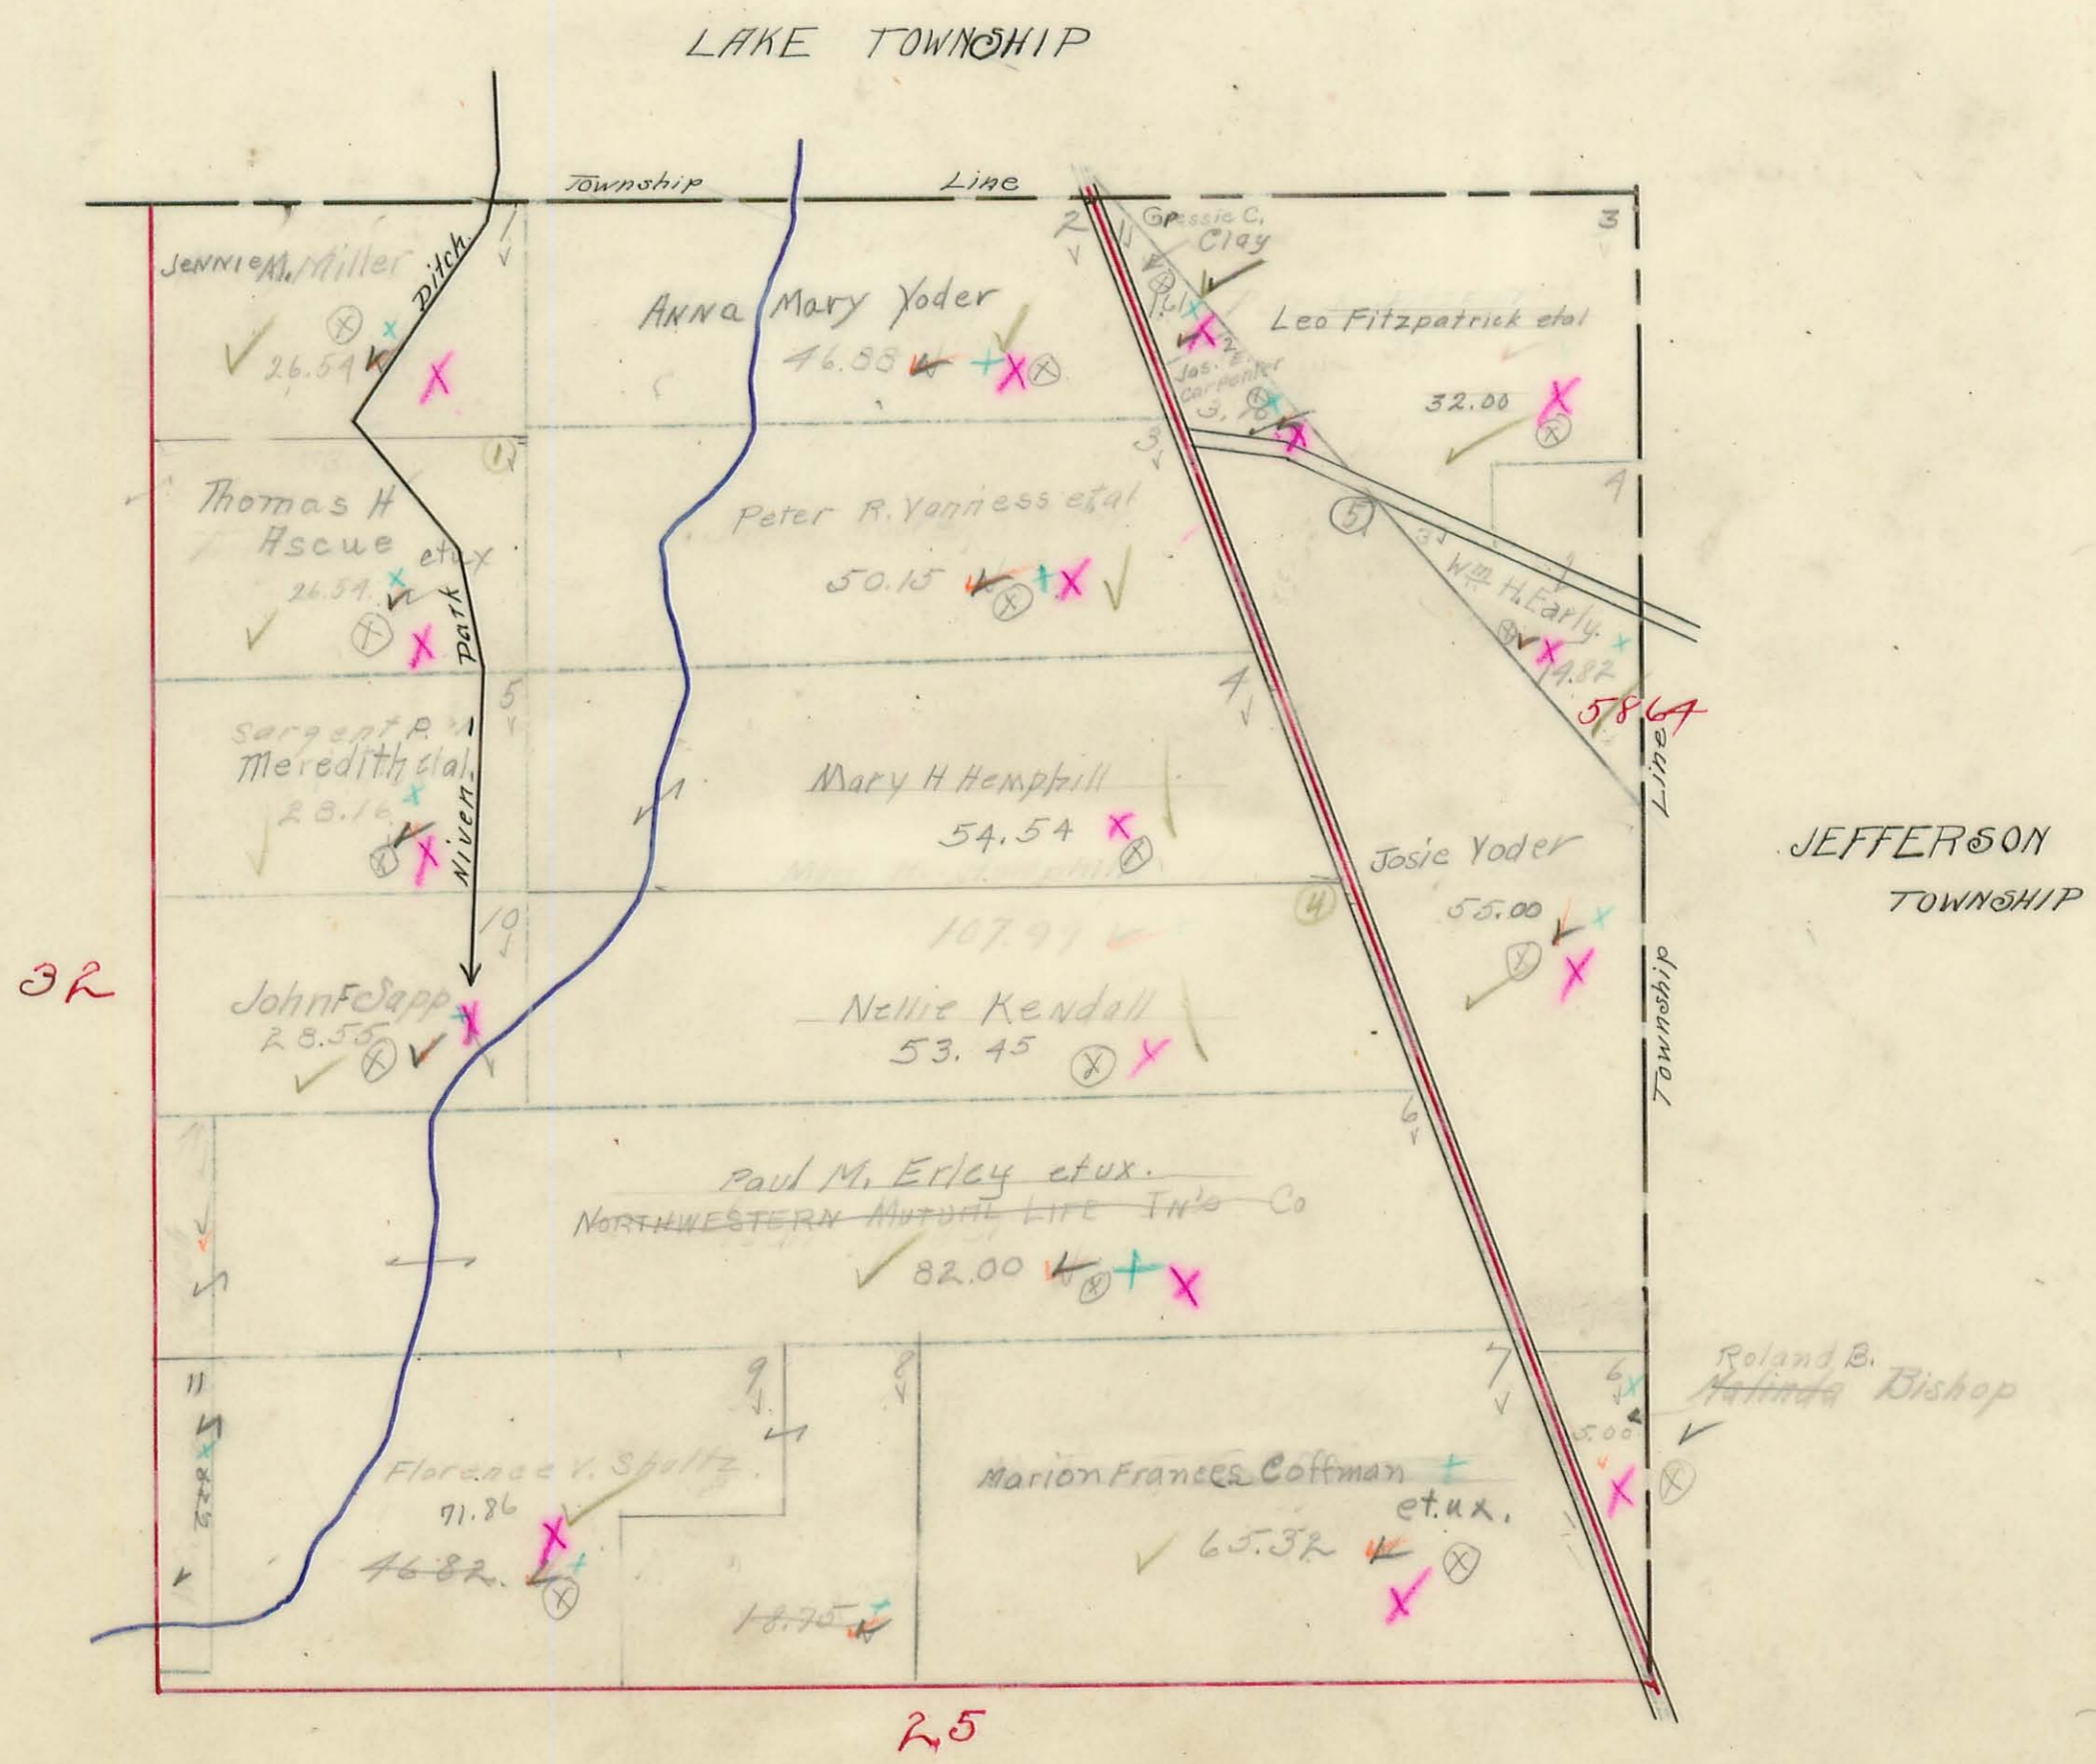 LAKE TOWNSHIP
Township Line
1
2
1
3
Jennie M. Miller
26.54
Ditch
Anna Mary Yoder
46.88
Clay
1.61
Jas. E.
Carpenter
Leo Fitzpatrick etal
32.00
1
3
4
5
3
1
Thomas H
Ascue etux
26.54
Park
Peter R. Vanness etal
50.15
Wm H. Early
5864
5
4
Sargent P.
Meredith etal.
28.16
Niven
Mary H Hemphill
54.54
Line
Josie Yoder
55.00
JEFFERSON
TOWNSHIP
10
4
107.99
32
John F Sapp
28.55
Nellie Kendall
53.45
Township
6
Paul M. Erley etux.
NORTHWESTERN MUTUAL LIFE IN'S Co
82.00
9
8
7
6
5.00
Roland B.
Malinda Bishop
11
Florence V. Shultz
71.86
46.82.
18.75
Marion Frances Coffman
et.ux.
65.32
25